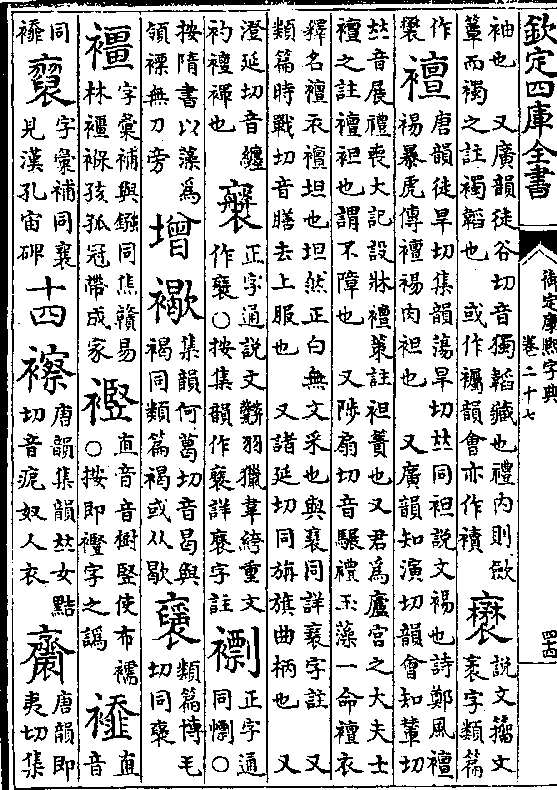 欽定四庫全書
御定康熙字典
卷二十七
四十四
袖也 又廣韻徒谷切音獨韜藏也禮內則斂
簟而襡之註襡韜也 或作襩韻會亦作襩
說文籀文
袤字類篇
作
襢
唐韻徒旱切集韻蕩旱切𠀤同袒說文裼也詩鄭風襢
裼暴虎傳襢裼肉袒也 又廣韻知演切韻會知輦切
𠀤音展禮喪大記設牀襢第註袒簀也又君爲廬宮之大夫士
襢之註襢袒也謂不障也 又陟扇切音驏禮玉藻一命襢衣
釋名襢衣襢坦也坦然正白無文采也與襄同詳襄字註 又
類篇時戰切音膳去上服也 又諸延切同旃旗曲柄也 又
澄延切音纏
礿襢襌也
正字通說文 羽獵韋絝重文
作褎○按集韻作褎詳褎字註
正字通
同 ○
按隋書以藻爲
領褾無刀旁
增
集韻何葛切音曷與
褐同類篇褐或从歇
類篇博毛
切同褒
繮
字彙補與繈同焦贛易
林襁褓孩孤冠帶成家
直音音樹豎使布襦
○按即裋字之譌
直
音
同
字彙補同襄
見漢孔宙碑
十四
䙰
唐韻集韻𠀤女黠
切音疤奴人衣
齌
唐韻即
夷切集